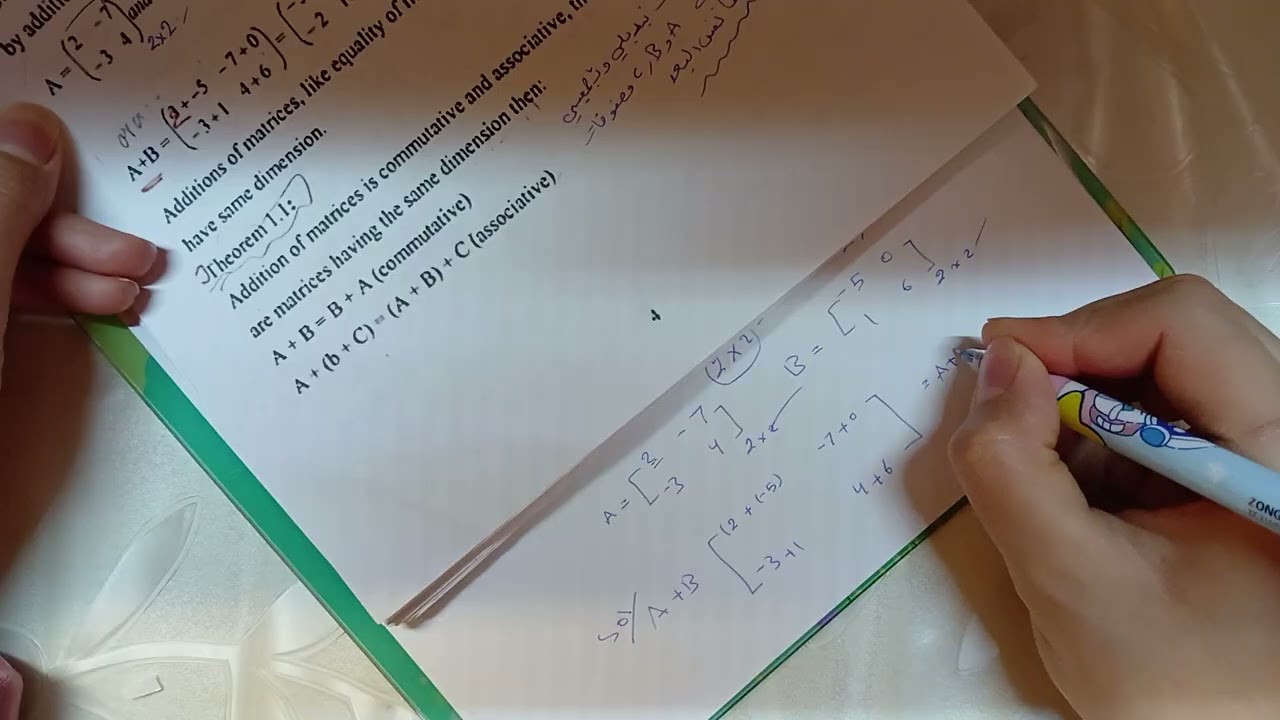 by additi
A = (2 -7
-3 4) and
2×2
A+B = (2+-5 -7+0
-3+1 4+6) = (-
-2 1
Additions of matrices, like equality of
have same dimension.
Theorem 1.1:
Addition of matrices is commutative and associative, th
are matrices having the same dimension then:
A + B = B + A (commutative)
A + (b + C) = (A + B) + C (associative)
4
2×2
A = [2 -7
-3 4] 2×2
B = [-5 0
1 6] 2×2
sol/ A+B [(2+(-5) -7+0
-3+1 4+6] = A+B
ZONG